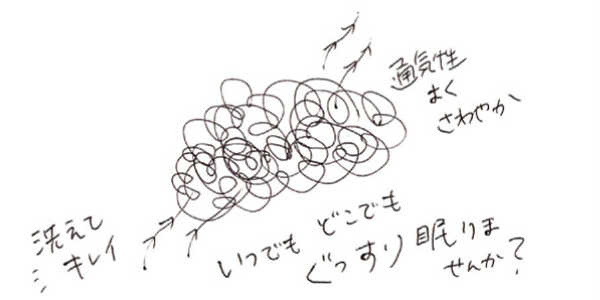 通気性
よく
さわやか
洗えて
キレイ
いつでも どこでも
ぐっすり 眠りま
せんか?